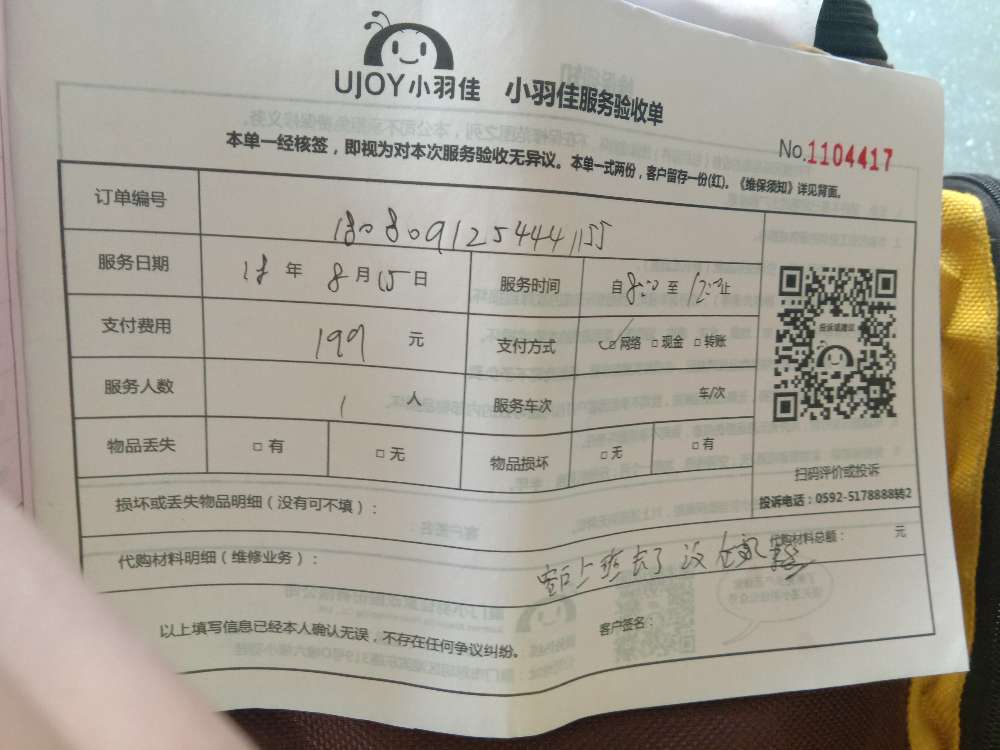 UJOY小羽佳 小羽佳服务验收单
No.1104417
本单一经核签，即视为对本次服务验收无异议。本单一式两份，客户留存一份(红)。《维保须知》详见背面。
订单编号 180809125444155
服务日期 18 年 8 月 15 日 服务时间 自 8:00 至 12:00 止
支付费用 199 元 支付方式 ✓□网络 □现金 □转账
服务人数 1 人 服务车次 车/次
物品丢失 □有 □无 物品损坏 □无 □有
投诉或建议
扫码评价或投诉
投诉电话：0592-5178888转2
损坏或丢失物品明细（没有可不填）：
代购材料明细（维修业务）： 代购材料总额： 元
客户上班去了 没
以上填写信息已经本人确认无误，不存在任何争议纠纷。 客户签名：